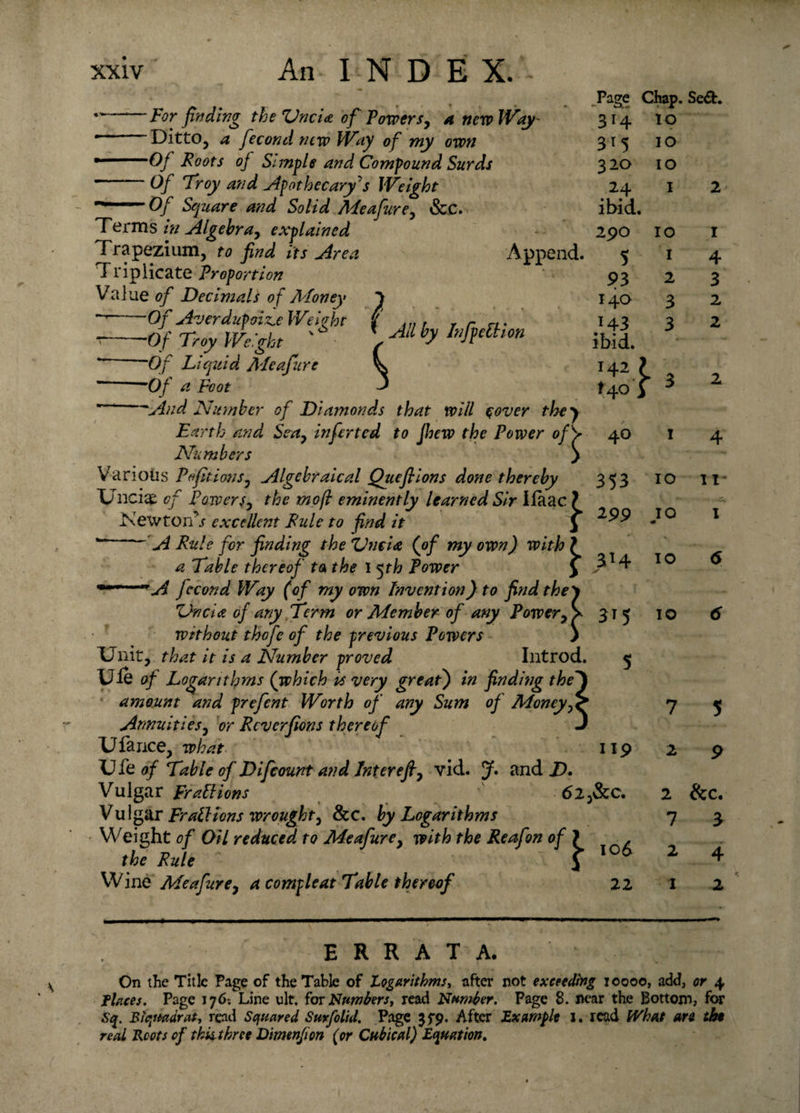 xxiv An INDEX.
Page Chap. Sect.
——For finding the Unciæ of Powers, a new Way 314 10
——Ditto, a ſecond new Way of my own 315 10
——Of Roots of Simple and Compound Surds 320 10
——Of Troy and Apothecary's Weight 24 1 2
——Of Square and Solid Meaſure, &c. ibid.
Terms in Algebra, explained 290 10 1
Trapezium, to find its Area Append. 5 1 4
Triplicate Proportion 93 2 3
Value of Decimals of Money 140 3 2
——Of Averdupoize Weight 143 3 2
——Of Troy Weight All by Inſpection ibid.
——Of Liquid Meaſure 142
——Of a Foot 140 3 2
——And Number of Diamonds that will cover the
Earth and Sea, inſerted to ſhew the Power of 40 1 4
Numbers
Various Poſitions, Algebraical Queſtions done thereby 353 10 11
Unciæ of Powers, the moſt eminently learned Sir Iſaac
Newton's excellent Rule to find it 299 10 1
——A Rule for finding the Unciæ (of my own) with
a Table thereof to the 15th Power 314 10 6
——A ſecond Way (of my own Invention) to find the
Unciæ of any Term or Member of any Power, 315 10 6
without thoſe of the previous Powers
Unit, that it is a Number proved Introd. 5
Uſe of Logarithms (which is very great) in finding the
amount and preſent Worth of any Sum of Money, 7 5
Annuities, or Reverſions thereof
Uſance, what 119 2 9
Uſe of Table of Diſcount and Intereſt, vid. J. and D.
Vulgar Fractions 62,&c. 2 &c.
Vulgar Fractions wrought, &c. by Logarithms 7 3
Weight of Oil reduced to Meaſure, with the Reaſon of
the Rule 106 2 4
Wine Meaſure, a compleat Table thereof 22 1 2
ERRATA.
On the Title Page of the Table of Logarithms, after not exceeding 10000, add, or 4
Places. Page 176. Line ult. for Numbers, read Number. Page 8. near the Bottom, for
Sq. Biquadrat, read Squared Surſolid. Page 359. After Example 1. read What are the
real Roots of this three Dimenſion (or Cubical) Equation.